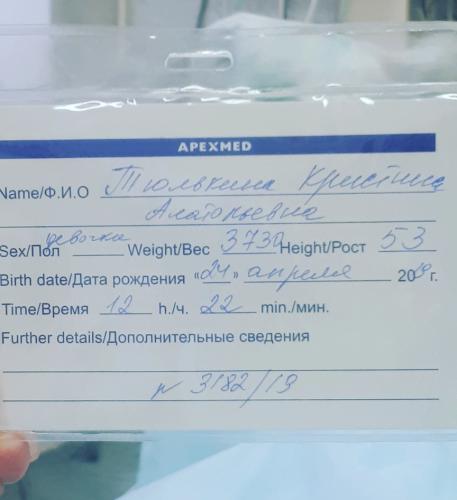 APEXMED
Name/Ф.И.О Тюлькина Кристина
Анатольевна
Sex/Пол девочка Weight/Вес 3730 Height/Рост 53
Birth date/Дата рождения «24» апреля 2019 г.
Time/Время 12 h./ч. 22 min./мин.
Further details/Дополнительные сведения
N 3182/19